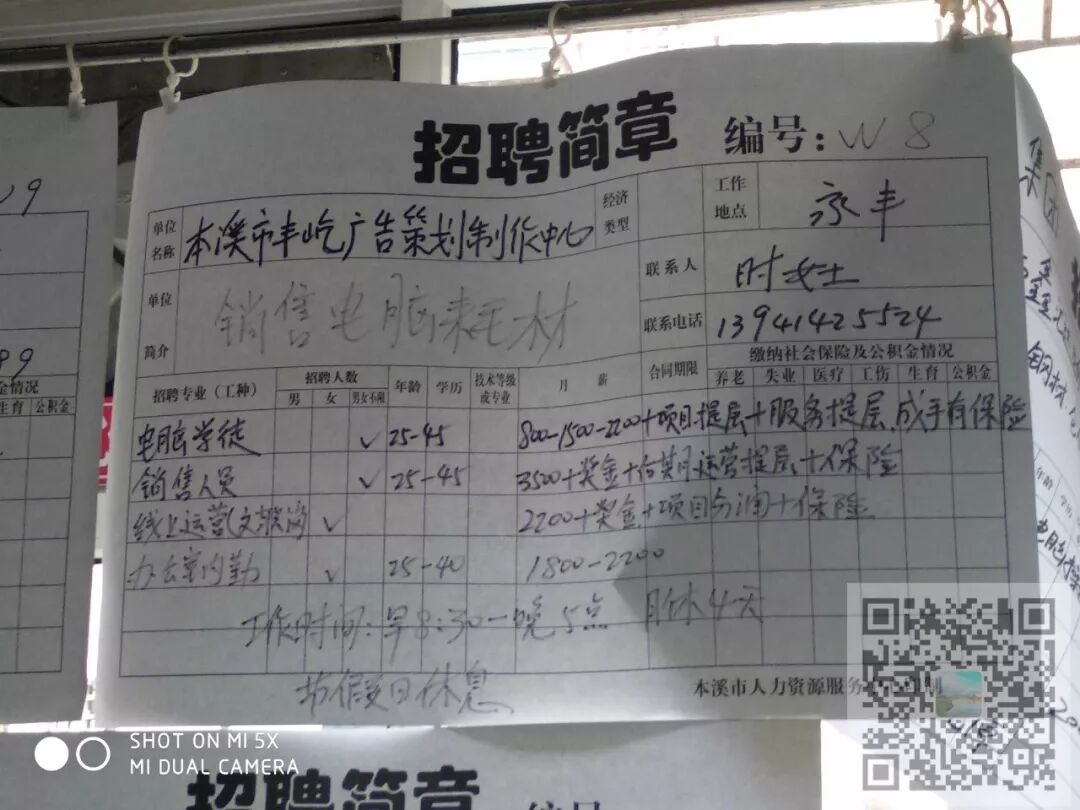 招聘简章 编号: W 8
单位名称 本溪市丰屹广告策划制作中心 经济类型 工作地点 永丰
联系人 时女士
单位简介 销售电脑耗材 联系电话 13941425524
招聘专业(工种) 招聘人数 男 女 男女不限 年龄 学历 技术等级或专业 月薪 合同期限 缴纳社会保险及公积金情况 养老 失业 医疗 工伤 生育 公积金
电脑学徒 ✓ 25-45 800-1500-2200+项目提层+服务提层,成手有保险
销售人员 ✓ 25-45 3500+奖金+后期运营提层+保险
线上运营(文 ✓ 2200+奖金+项目分润+保险
办公室内勤 ✓ 25-40 1800-2200
工作时间:早8:30-晚5点 月休4天
节假日休息
本溪市人力资源服务
SHOT ON MI 5X
MI DUAL CAMERA
招聘简章 编号
集团
钢材
金情况
生育 公积金
年龄 学历